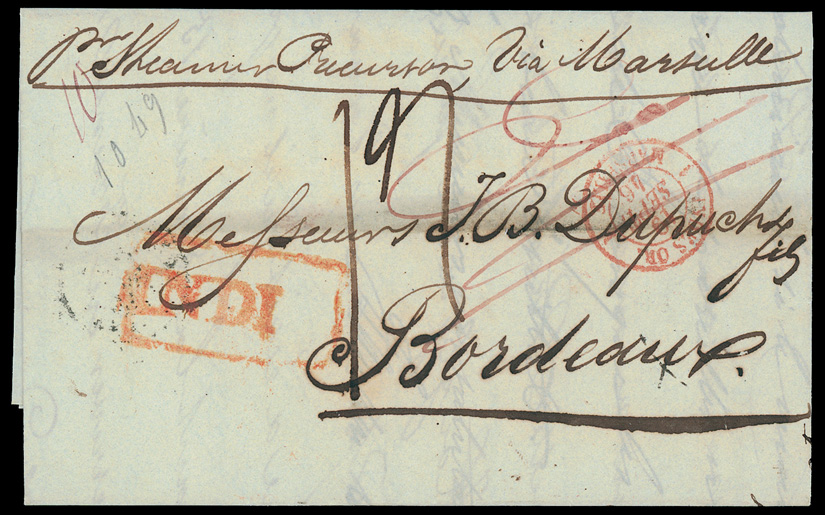 pr Steamer Precursor Via Marseille
10
1049
Messieurs J. B. Dupuch & fils
Bordeaux.
INDIA
SEPT
46